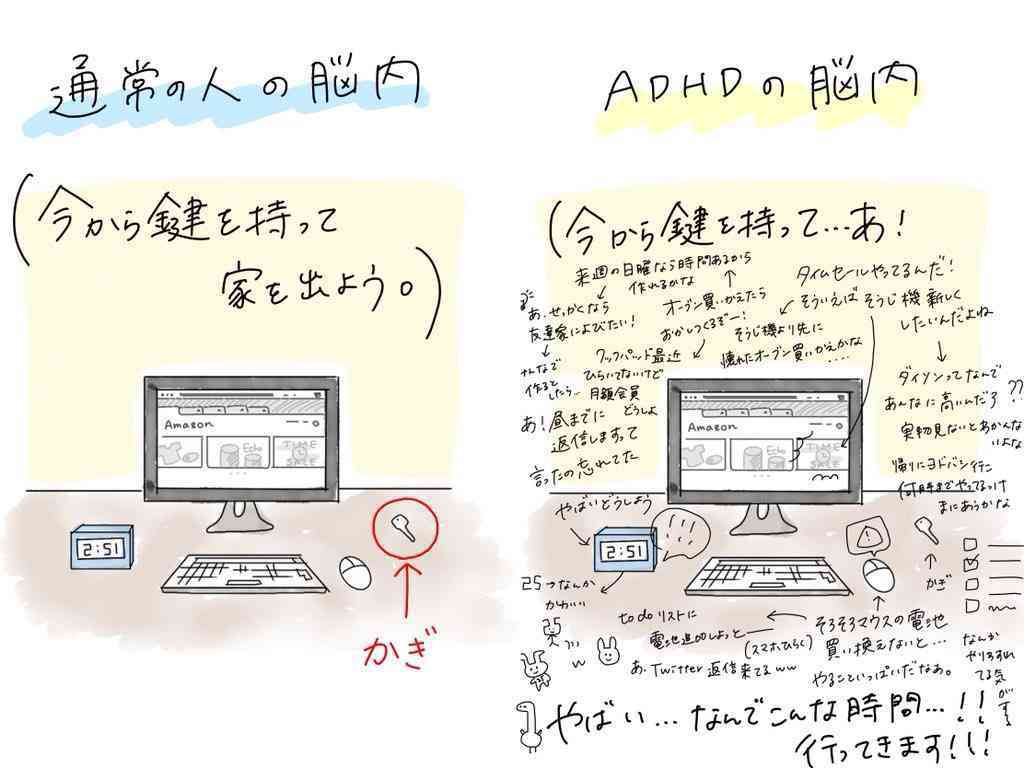 通常の人の脳内
(今から鍵を持って
家を出よう。)
Amazon
Echo
TIME
SALE
2:51
かぎ
ADHDの脳内
(今から鍵を持って…あ!
タイムセールやってるんだ!
そういえばそうじ機新しく
したいんだよね
ダイソンってなんで
あんなに高いんだろ??
実物見ないとあかんな
いよな
帰りにヨドバシ行こ
何時までやってるっけ
まにあうかな
そうじ機より先に
壊れたオーブン買いかえかな
....
オーブン買いかえたら
おかしつくるぞー!
来週の日曜なら時間あるから
作れるかな
あ、せっかくなら
友達家によびたい!
みんなで
作るると
したら…
クックパッド最近
ひらいてないけど
月額会員
どうしよ
あ!昼までに
返信しますって
言ったの忘れてた
やばいどうしよう
Amazon
Echo
TIME
SALE
2:51
25→なんか
かわいい
25
w
!
かぎ
そろそろマウスの電池
買い換えないと…
やることいっぱいだなあ。
(スマホひらく)
to do リストに
電池追加しよっと
あ、Twitter返信来てるww
なんか
やりわすれ
てる気
がする
やばい…なんでこんな時間…!!
行ってきます!!!